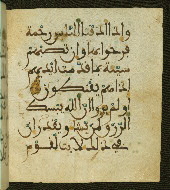 وإذا أذقنا الناس رحمة
فرحوا بها وإن تصبهم
سيئة بما قدمت أيديهم
إذا هم يقنطون
أولم يروا أن الله يبسط
الرزق لمن يشاء ويقدر إن
في ذلك لأيت لقوم